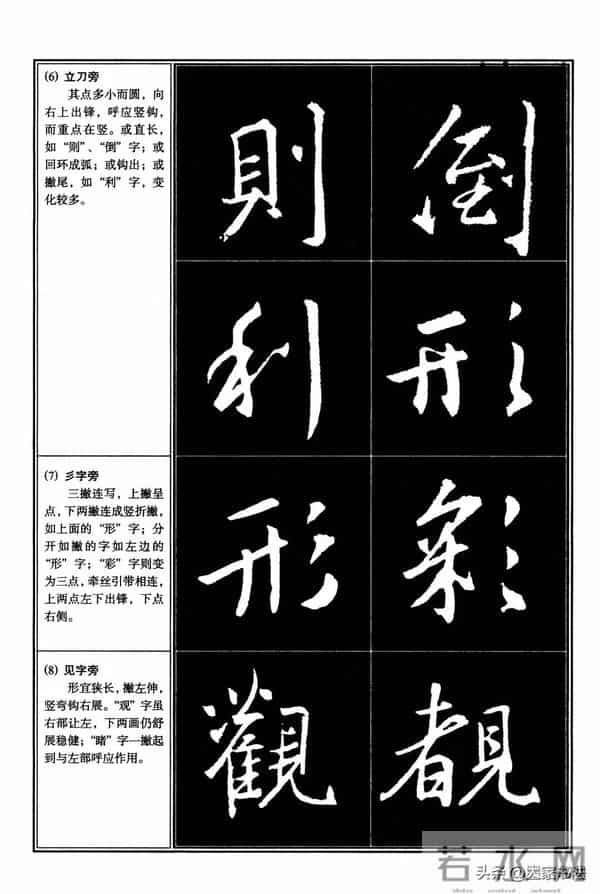 (6) 立刀旁
其点多小而圆，向
右上出锋，呼应竖钩，
而重点在竖。或直长，
如“则”、“倒”字；或
回环成弧；或钩出；或
撇尾，如“利”字，变
化较多。
則 倒
利 形
(7) 彡字旁
三撇连写，上撇呈
点，下两撇连成竖折撇，
如上面的“形”字；分
开如撇的字如左边的
“形”字；“彩”字则变
为三点，牵丝引带相连，
上两点左下出锋，下点
右侧。
形 彩
(8) 见字旁
形宜狭长，撇左伸，
竖弯钩右展。“观”字虽
右部让左，下两画仍舒
展稳健；“睹”字一撇起
到与左部呼应作用。
觀 覩
若水网
头条